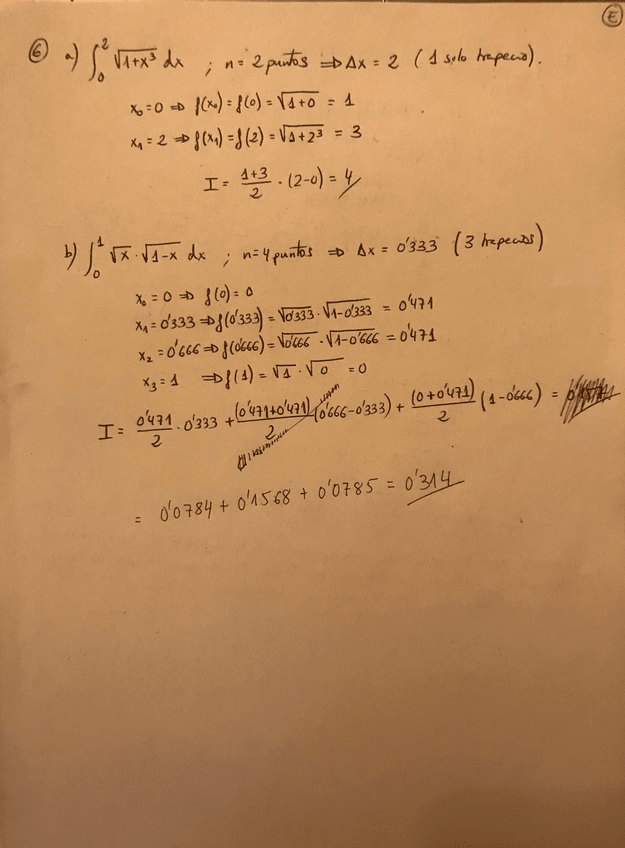 E
⑥ a) ∫₀² √(1+x³) dx ; n=2 puntos ⇒ Δx = 2 (1 solo trapecio).
x₀=0 ⇒ f(x₀)=f(0)=√(1+0) = 1
x₁=2 ⇒ f(x₁)=f(2)=√(1+2³) = 3
I = (1+3)/2 · (2-0) = 4
b) ∫₀¹ √x · √(1-x) dx ; n=4 puntos ⇒ Δx = 0'333 (3 trapecios)
x₀=0 ⇒ f(0)=0
x₁=0'333 ⇒ f(0'333)=√0'333 · √(1-0'333) = 0'471
x₂=0'666 ⇒ f(0'666)=√0'666 · √(1-0'666) = 0'471
x₃=1 ⇒ f(1)=√1 · √0 = 0
I = 0'471/2 · 0'333 + (0'471+0'471)/2 (0'666-0'333) + (0+0'471)/2 (1-0'666) =
= 0'0784 + 0'1568 + 0'0785 = 0'314